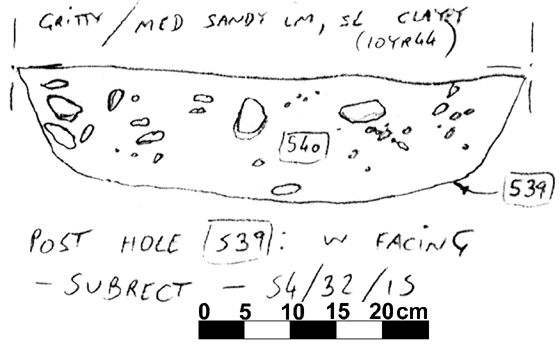 GRITTY/MED SANDY LM, SL CLAYEY
(10YR44)
540
539
POST HOLE [539]: W FACING
- SUBRECT - 54/32/15
0 5 10 15 20cm